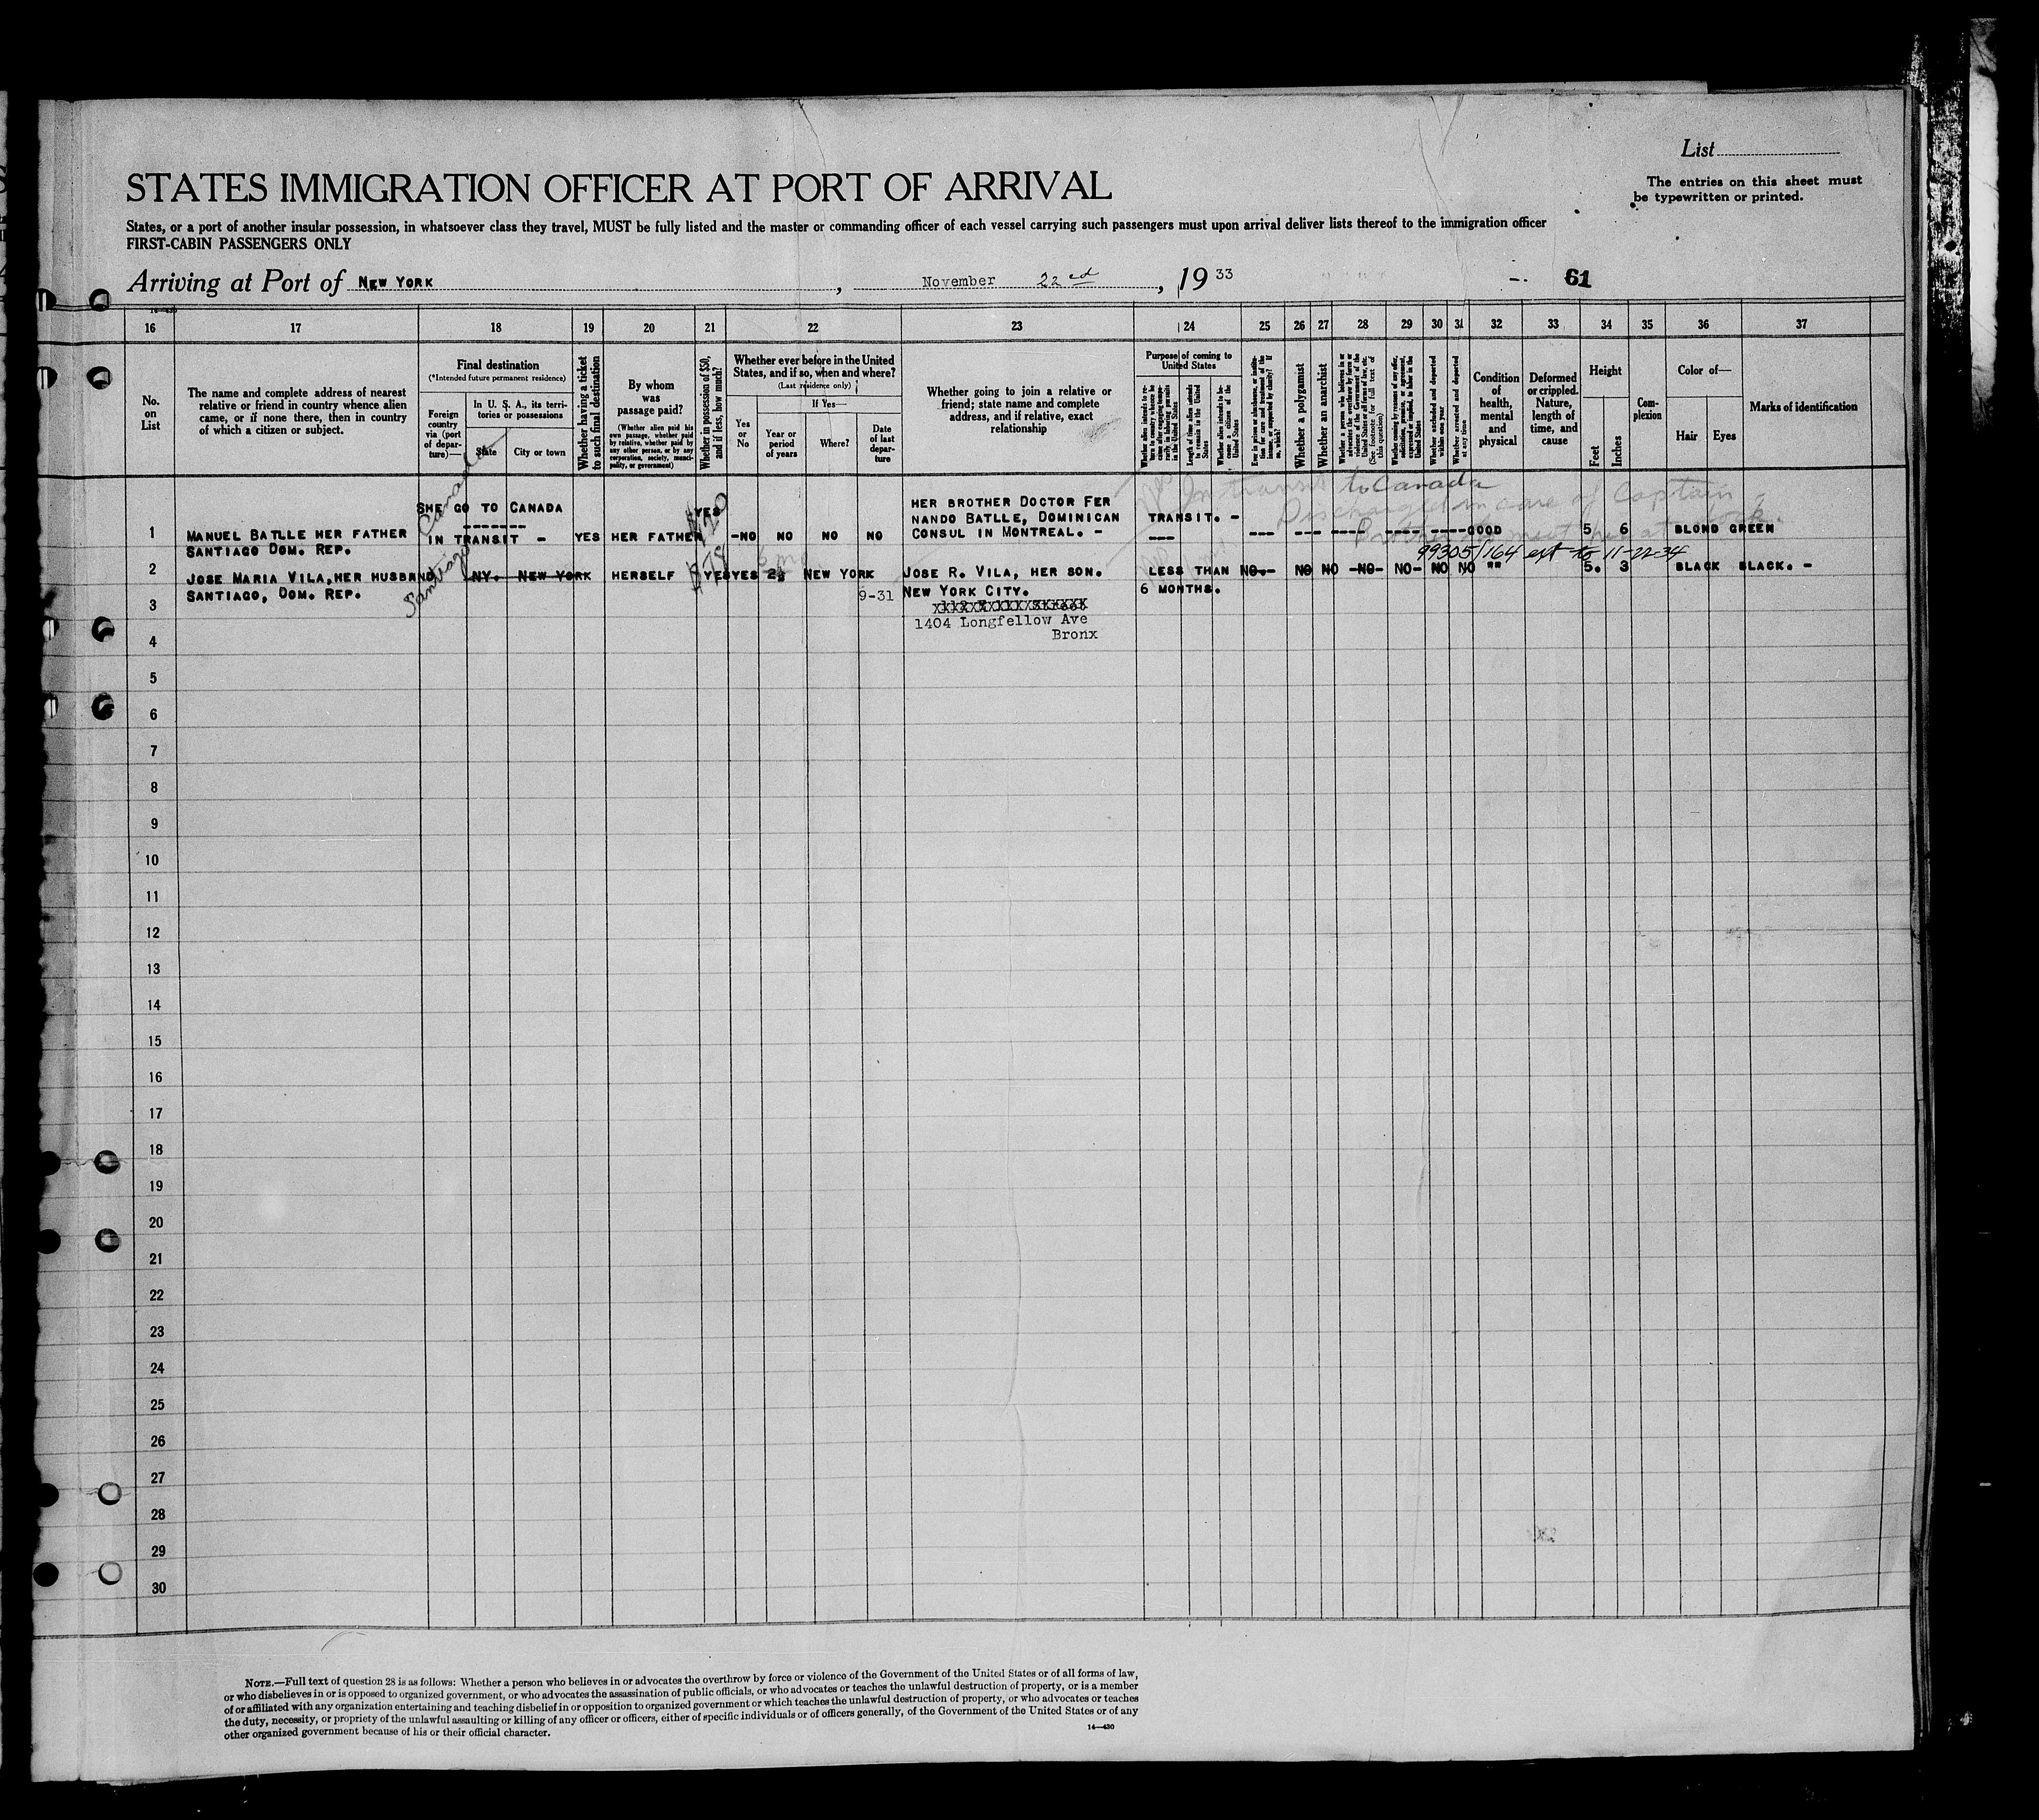 List
STATES IMMIGRATION OFFICER AT PORT OF ARRIVAL
The entries on this sheet must
be typewritten or printed.
States, or a port of another insular possession, in whatsoever class they travel, MUST be fully listed and the master or commanding officer of each vessel carrying such passengers must upon arrival deliver lists thereof to the immigration officer
FIRST-CABIN PASSENGERS ONLY
Arriving at Port of NEW YORK, November 22ed, 1933
61
16 17 18 19 20 21 22 23 24 25 26 27 28 29 30 31 32 33 34 35 36 37
No.
on
List
The name and complete address of nearest
relative or friend in country whence alien
came, or if none there, then in country
of which a citizen or subject.
Final destination
(*Intended future permanent residence)
Foreign
country
via (port
of depar-
ture)—
In U. S. A., its terri-
tories or possessions
State
City or town
Whether having a ticket
to such final destination
By whom
was
passage paid?
(Whether alien paid his
own passage, whether paid
by relative, whether paid by
any other person, or by any
corporation, society, munici-
pality, or government)
Whether in possession of $50,
and if less, how much?
Whether ever before in the United
States, and if so, when and where?
(Last residence only)
If Yes—
Yes
or
No
Year or
period
of years
Where?
Date
of last
depar-
ture
Whether going to join a relative or
friend; state name and complete
address, and if relative, exact
relationship
Purpose of coming to
United States
Length of time alien intends
to remain in the United
States
Whether alien intends to be-
come a citizen of the
United States
Whether a polygamist
Whether an anarchist
(See footnote for full text of
this question)
Whether excluded and deported
within one year
Whether arrested and deported
at any time
Condition
of
health,
mental
and
physical
Deformed
or crippled.
Nature,
length of
time, and
cause
Height
Feet
Inches
Com-
plexion
Color of—
Hair
Eyes
Marks of identification
In transit to Canada
Discharged in care of Captain
Canada
SHE GO TO CANADA
-------
IN TRANSIT -
1 MANUEL BATLLE HER FATHER
SANTIAGO DOM. REP.
YES HER FATHER YES $120 -NO NO NO NO
HER BROTHER DOCTOR FER
NANDO BATLLE, DOMINICAN
CONSUL IN MONTREAL. -
TRANSIT. -
--- --- --- ---- ---- ---- GOOD 5 6 BLOND GREEN
99305/164 ext to 11-22-34
2 JOSE MARIA VILA, HER HUSBAND,
SANTIAGO, DOM. REP.
Santiago
NY. NEW YORK HERSELF YES $78 YES 2½ NEW YORK
9-31
JOSE R. VILA, HER SON.
NEW YORK CITY.
1404 Longfellow Ave
Bronx
LESS THAN
6 MONTHS.
NO.- NO NO -NO- NO- NO NO "" 5. 3 BLACK BLACK. -
3
4
5
6
7
8
9
10
11
12
13
14
15
16
17
18
19
20
21
22
23
24
25
26
27
28
29
30
NOTE.—Full text of question 28 is as follows: Whether a person who believes in or advocates the overthrow by force or violence of the Government of the United States or of all forms of law,
or who disbelieves in or is opposed to organized government, or who advocates the assassination of public officials, or who advocates or teaches the unlawful destruction of property, or is a member
of or affiliated with any organization entertaining and teaching disbelief in or opposition to organized government or which teaches the unlawful destruction of property, or who advocates or teaches
the duty, necessity, or propriety of the unlawful assaulting or killing of any officer or officers, either of specific individuals or of officers generally, of the Government of the United States or of any
other organized government because of his or their official character.
14—430